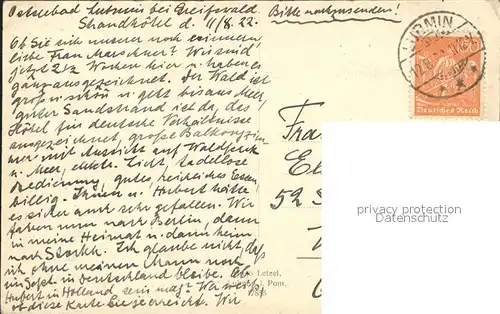 Ostseebad Lubmin bei Greifswald
Strandhôtel d. 11/8. 22.
Bitte nachzusenden!
Ob Sie sich unserer noch erinnern,
liebe Frau Marschner? Wir sind
jetzt 2½ Wochen hier u. haben es
ganz ausgezeichnet. Der Wald ist
groß u. schön u. geht bis ans Meer,
guter Sandstrand ist da, das
Hôtel für deutsche Verhältnisse
ausgezeichnet, große Balkonzim
mer mit Aussicht auf Wald
u. Meer, elektr. Licht, tadellose
Bedienung, gutes, reichliches Essen,
billig. Ihnen u. Hubert hätte
es sicher auch sehr gefallen. Wir
fahren nun nach Berlin, dann
in meine Heimat u. dann heim
nach Stockh. Ich glaube nicht, daß
ich ohne meinen Mann noch
in Deutschland bleibe. Ob
Hubert in Holland sein mag? Wer weiß, ob
diese Karte Sie je erreicht. Wir
LUBMIN
Deutsches Reich
Fra
El
52
Letzel,
Pom.
privacy protection
privacy protection